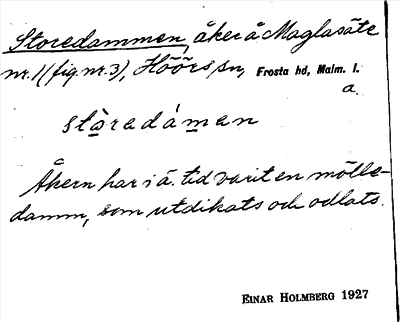 Storedammen, åker å Maglasäte
nr. 1 (fig. nr. 3), Höörs sn, Frosta hd, Malm. l.
a.
stòredámen
Åkern har i ä. tid varit en mölle-
damm, som utdikats och odlats.
EINAR HOLMBERG 1927